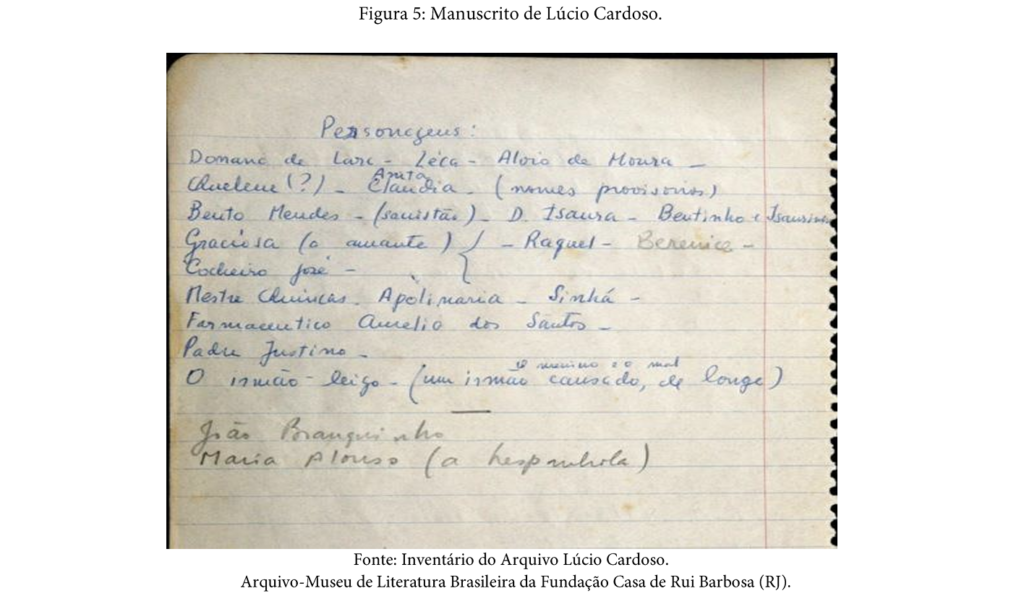 Figura 5: Manuscrito de Lúcio Cardoso.
Personagens:
Donana de Lara - Léca - Aloio de Moura -
Anita
(?) - Claudia - (nomes provisorios)
Bento Mendes - (sacristão) - D. Isaura - Bentinho e Isaurinha
Graciosa (a amante) { - Raquel - Berenice -
Cocheiro José -
Mestre Quincas. Apolinaria - Sinhá -
Farmaceutico Aurelio dos Santos -
Padre Justino -
O menino e o mal
O irmão-leigo - (um irmão causado, de longe)
João Branquinho
Maria Alonso (a hespanhola)
Fonte: Inventário do Arquivo Lúcio Cardoso.
Arquivo-Museu de Literatura Brasileira da Fundação Casa de Rui Barbosa (RJ).